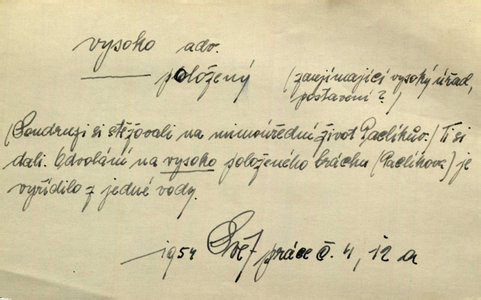 vysoko adv.
položený (zaujímající vysoký úřad,
postavení?)
(Soudruzi si stěžovali na mimoúřední život Pavlíkův.) Ti si
dali. Odvolání na vysoko položeného bráchu (Pavlíkova) je
vyřídilo z jedné vody.
1954 Svět práce č. 4, 12 a